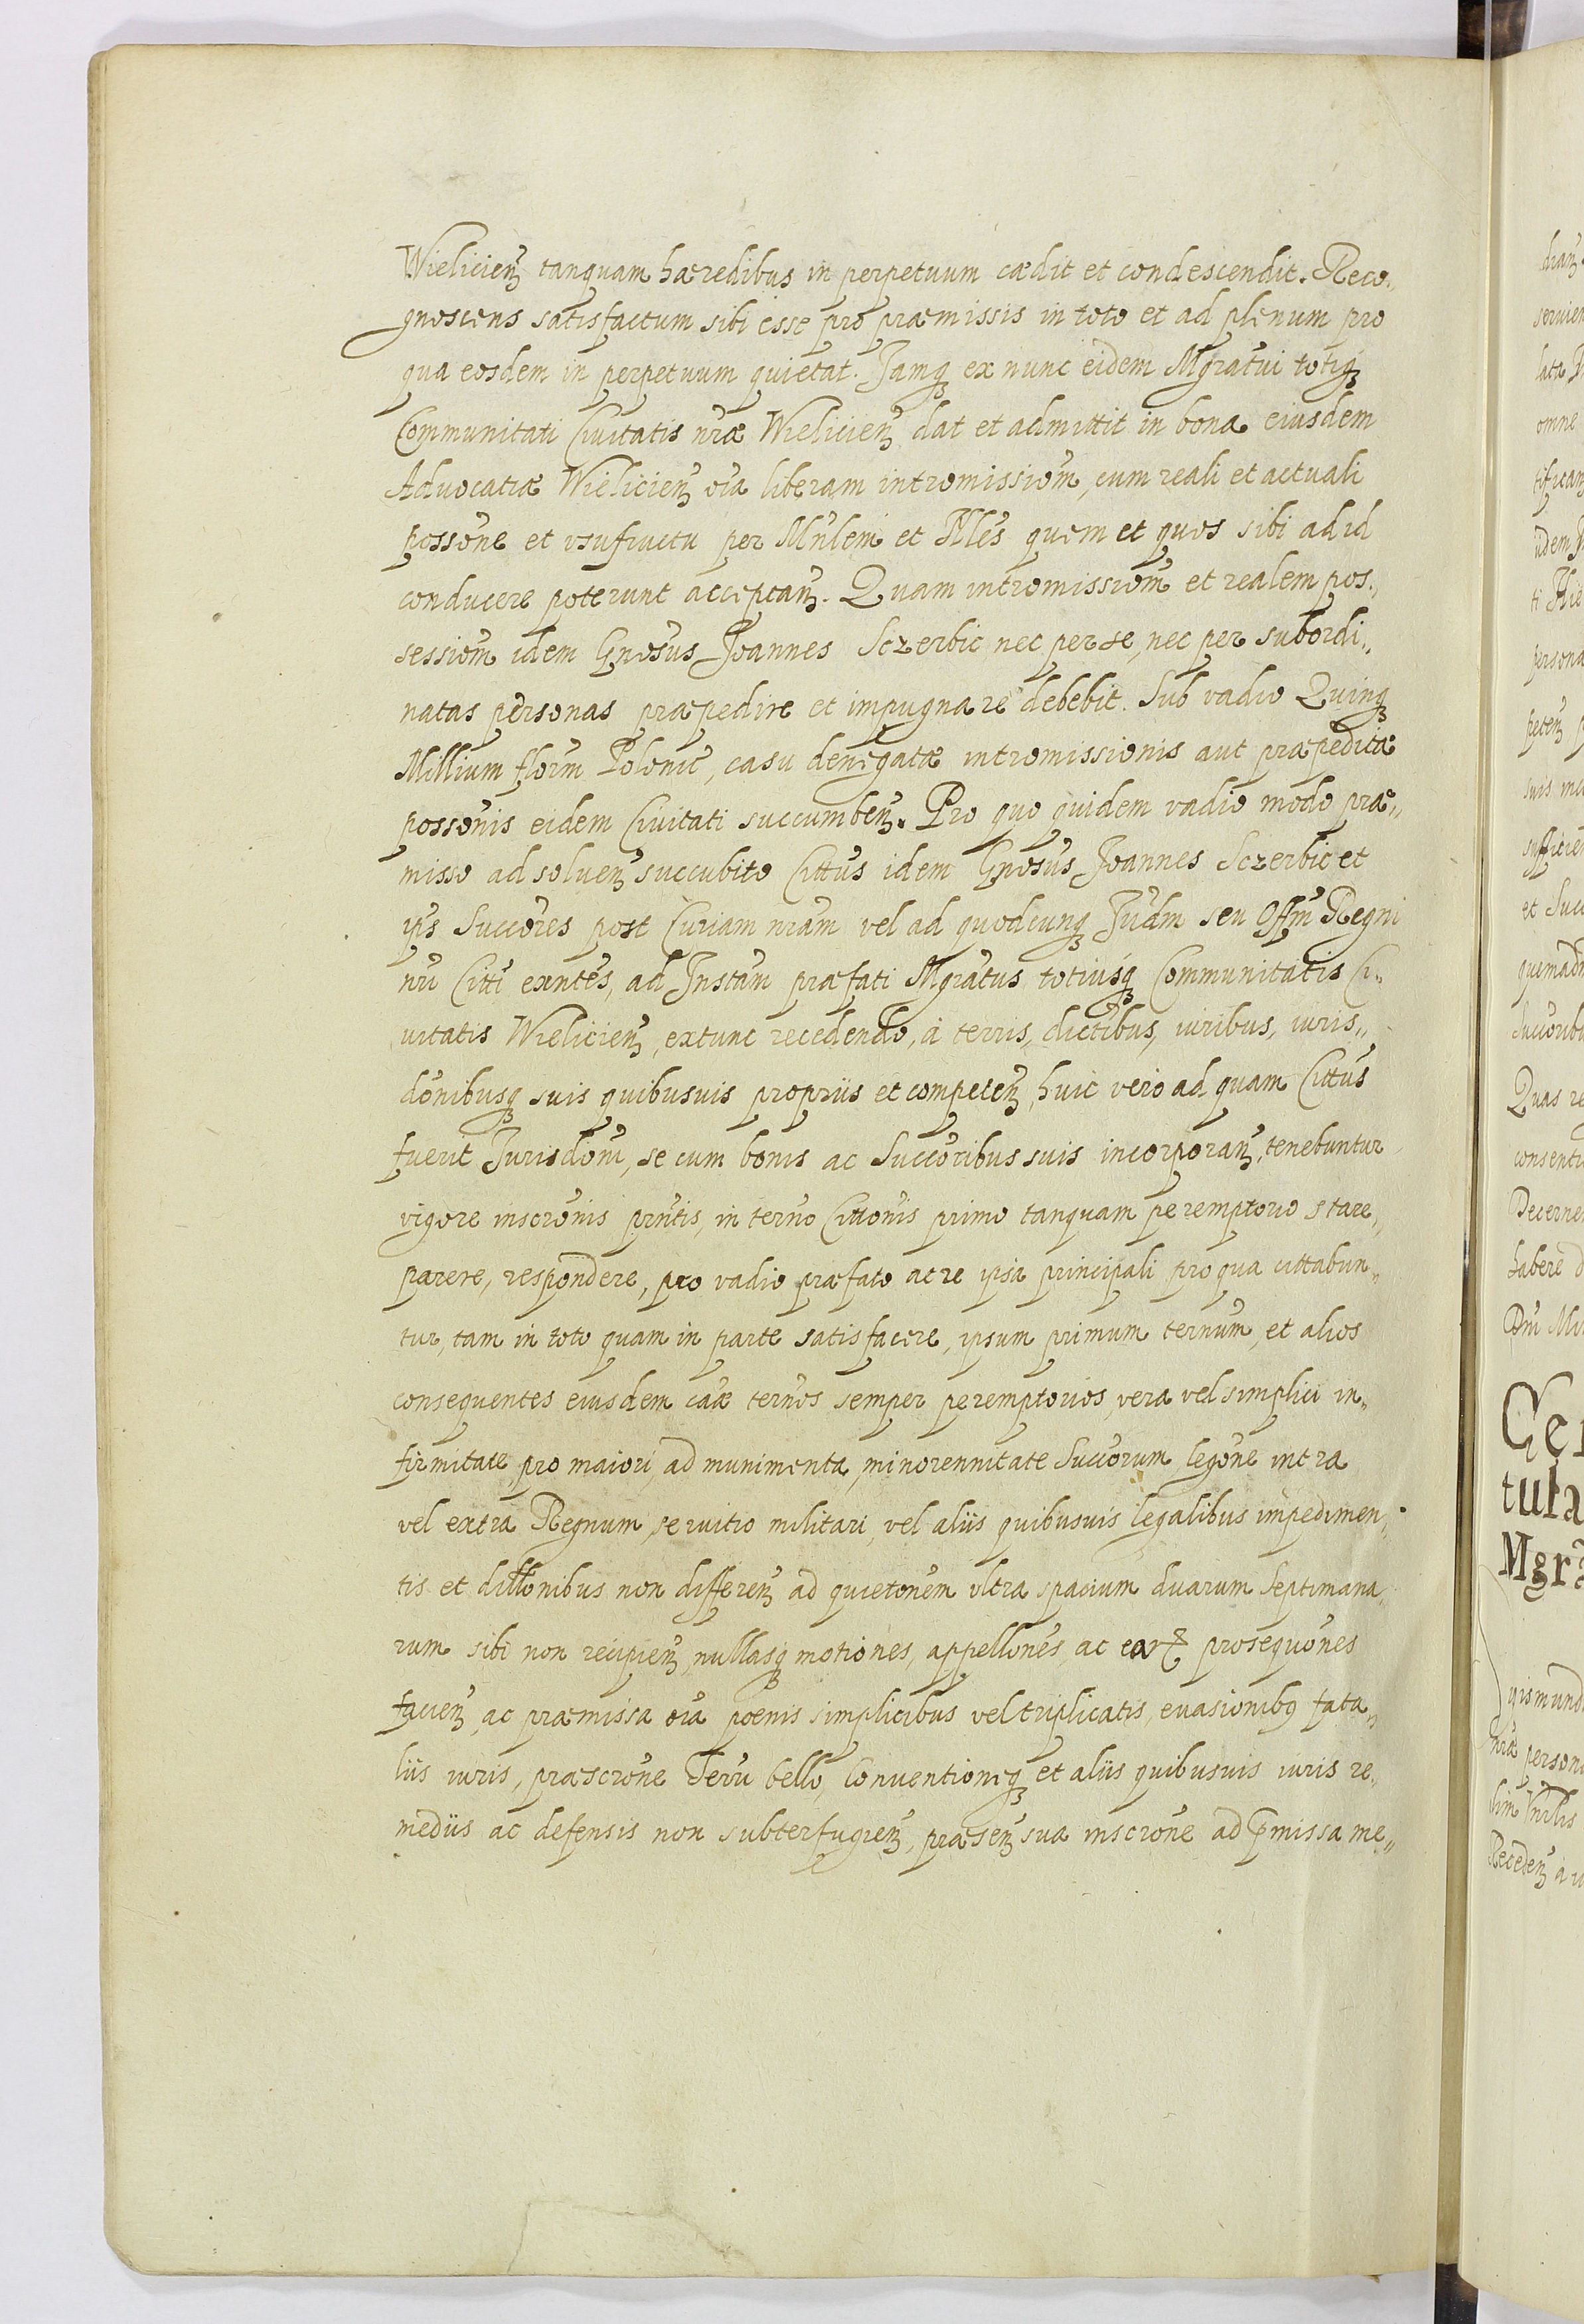 Wielicien̄ tanquam hæredibus in perpetuum cædit et condescendit. Reco„
gnoscens satisfactum sibi esse pro præmissis in toto et ad plenum pro
qua eosdem in perpetuum quietat. Jamqꝫ ex nunc eidem Mgratui totiqꝫ
Communitati Ciuitatis nræ Wielicien̄ dat et admittit in bona eiusdem
Aduocatiæ Wielicien̄ oia liberam intromissiom̄, cum reali et actuali
possōne et vsufructu per Mnlem et Nles quem et quos sibi ad id
conducere poterunt acceptan̄. Quam intromissiom̄ et realem pos„
sessiom̄ idem Gnosus Joannes Sczerbic nec per se, nec per subordi„
natas personas præpedire et impugnare debebit. Sub vadio Quinqꝫ
Millium florm̄ Polonic̄, casu denegatæ intromissionis aut præpeditæ
possōnis eidem Ciuitati succumben̄. Pro quo quidem vadio modo præ„
misso ad soluen̄ succubito Cittus idem Gnosus Joannes Sczerbic et
ips Succores post Curiam nram vel ad quodcunqꝫ Judm seu Offm̄ Regni
nri Citti exntes, ad Instam̄ præfati Mgratus totiusqꝫ Communitatis Ci„
uitatis Wielicien̄, extunc recedendo, à terris, dictibus, iuribus, iuris„
dōnibusqꝫ suis quibusuis propriis et competen̄, huic vero ad quam Cittus
fuerit Jurisdōni, se cum bonis ac Succoribus suis incorporan̄, tenebuntur
vigore inscrōnis prntis, in terno Cittōnis primo tanquam peremptorio stare„
parere, respondere, pro vadio præfato ac re ipsa principali pro qua cittabun„
tur, tam in toto quam in parte satisfacere, ipsum primum ternum, et alios
consequentes eiusdem caæ ternos semper peremptorios, vera vel simplici in„
firmitate, pro maiori, ad munimenta, minorennitate Succorum legōne intra
vel extra Regnum, seruitio militari, vel aliis quibusuis legalibus impedimen„
tis et dillōnibus non differen̄ ad quietōnem vltra spacium duarum Septimana„
rum sibi non recipien̄, nullasqꝫ motiones, appellōnes, ac earꝝ prosequōnes
facien̄, ac præmissa oia poenis simplicibus vel triplicatis, euasionibꝰ fata„
liis iuris, præscrōne Terr̄ bello, Conuentioneqꝫ et aliis quibusuis iuris re„
mediis ac defensis non subterfugien̄, præsen̄ sua inscrōne ad p̄missa me„